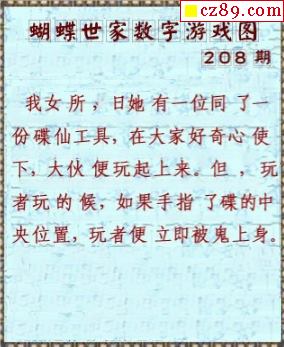 cz89.com
蝴蝶世家数字游戏图
208期
我女所，日她有一位同了一
份碟仙工具，在大家好奇心使
下，大伙便玩起上来。但，玩
者玩的候，如果手指了碟的中
央位置，玩者便立即被鬼上身。